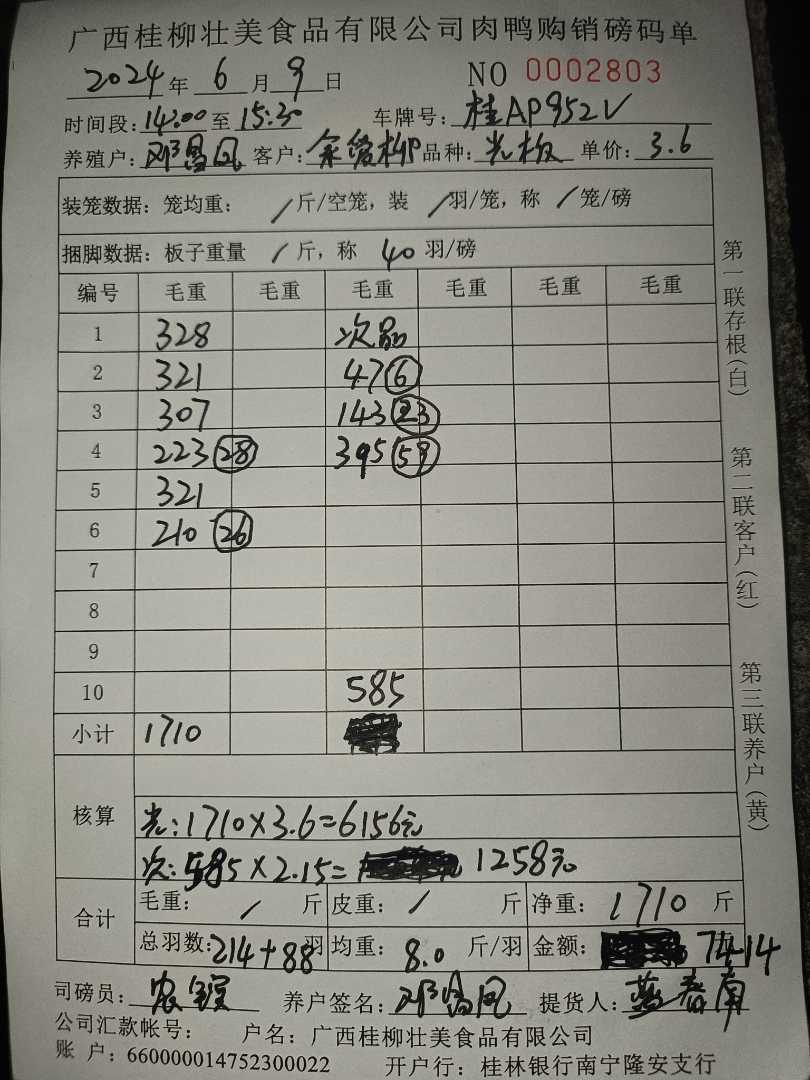 广西桂柳壮美食品有限公司肉鸭购销磅码单
2024年 6月9日 NO 0002803
时间段:14:00至15:30 车牌号:桂AP952V
养殖户:邓昌凤 客户:余爱柳 品种:光板 单价:3.6
装笼数据:笼均重: /斤/空笼,装 /羽/笼,称 /笼/磅
捆脚数据:板子重量 /斤,称 40羽/磅
编号 毛重 毛重 毛重 毛重 毛重 毛重
1 328 次品
2 321 47 6
3 307 143 23
4 223 28 395 59
5 321
6 210 26
7
8
9
10 585
小计 1710
核算
光:1710×3.6=6156元
次:585×2.15= 1258元
合计 毛重: / 斤 皮重: / 斤 净重: 1710 斤
总羽数:214+88羽 均重: 8.0 斤/羽 金额: 7414
司磅员: 养户签名:邓昌凤 提货人:蓝春南
公司汇款帐号: 户名:广西桂柳壮美食品有限公司
账 户:660000014752300022 开户行:桂林银行南宁隆安支行
第一联存根(白)
第二联客户(红)
第三联养户(黄)